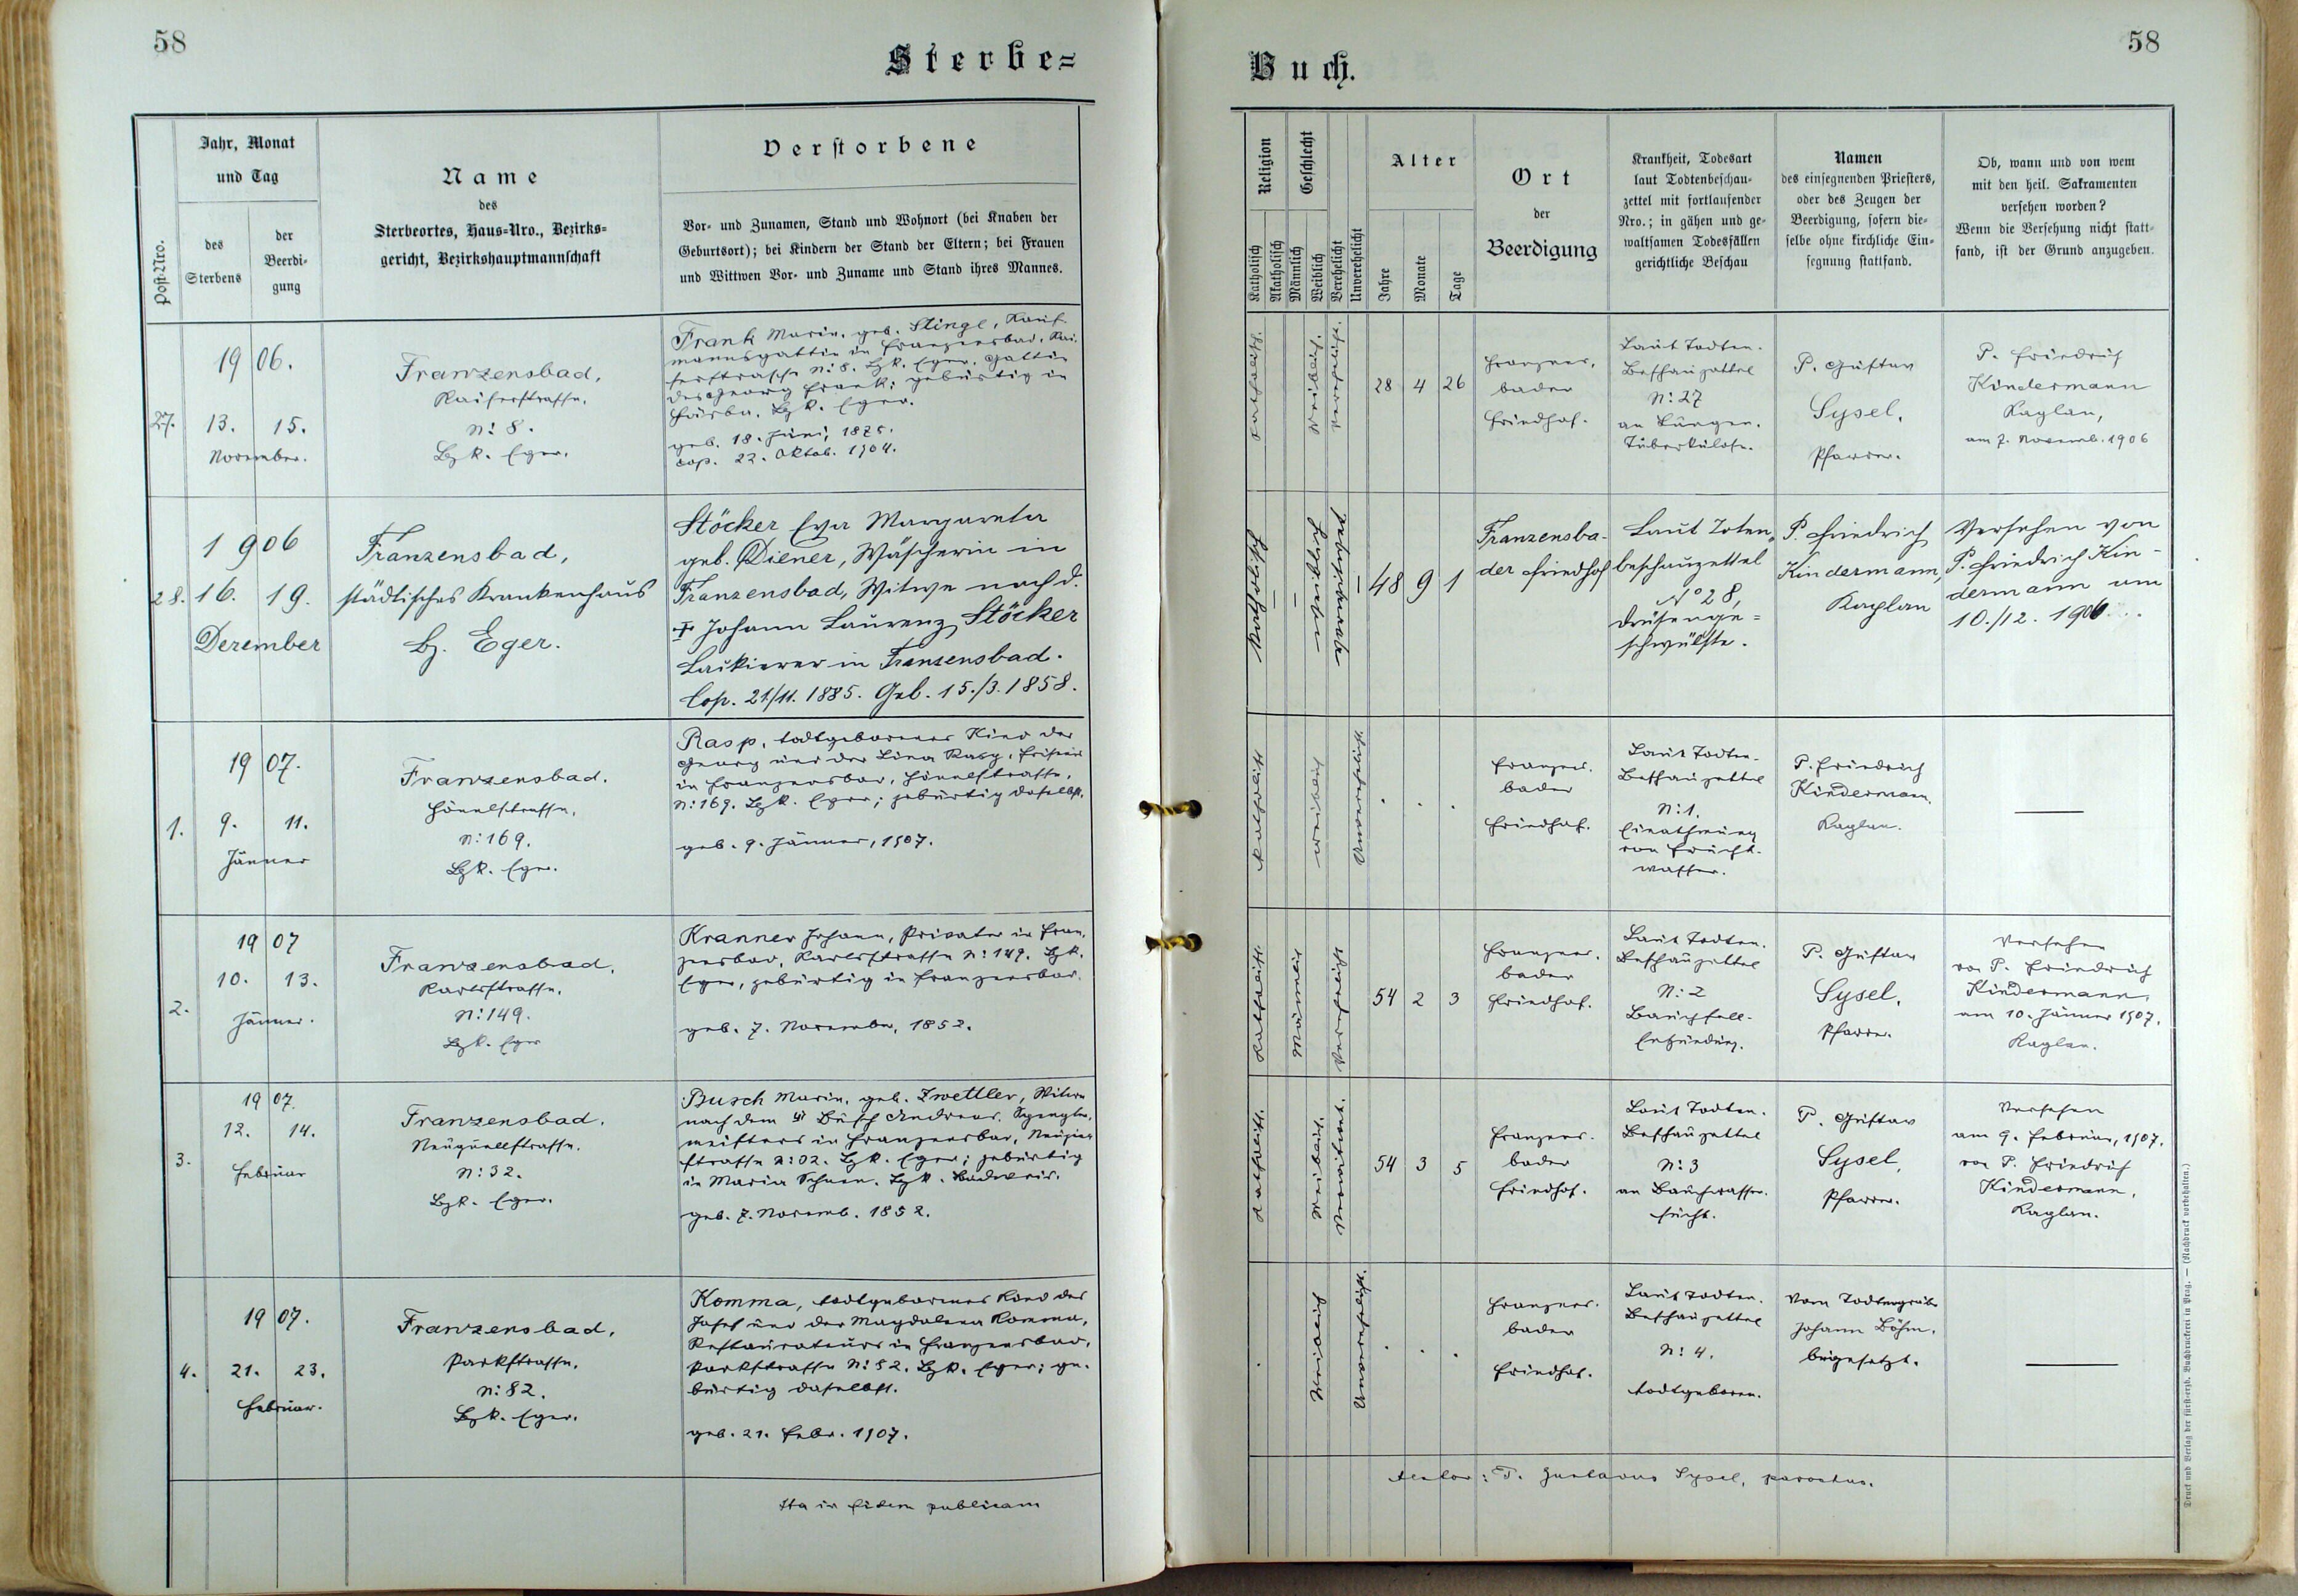 58
Sterbe=
Jahr, Monat
und Tag
Post-Nro.
des
Sterbens
der
Beerdi-
gung
Name
des
Sterbeortes, Haus-Nro., Bezirks-
gericht, Bezirkshauptmannschaft
Verstorbene
Vor- und Zunamen, Stand und Wohnort (bei Knaben der
Geburtsort); bei Kindern der Stand der Eltern; bei Frauen
und Wittwen Vor- und Zuname und Stand ihres Mannes.
27.
1906.
13. 15.
November.
Franzensbad,
Kaiserstrasse.
N: 8.
Bzk. Eger.
Frank Maria, geb. Stingl, Kauf-
mannsgattin in Franzensbad, Kai-
serstrasse N: 8. Bzk. Eger. Gattin
des Georg Frank; gebürtig in
Bzk. Eger.
geb. 18. Juni, 1878.
cop. 22. Oktob. 1904.
28.
1906
16. 19.
Dezember
Franzensbad,
städtisches Krankenhaus
Bz. Eger.
Stöcker Eva Margareta
geb. Diener, Wäscherin in
Franzensbad, Witwe nach d.
† Johann Laurenz Stöcker
Lackierer in Franzensbad.
Cop. 21/11. 1885. Geb. 15./3. 1858.
1.
1907.
9. 11.
Jänner
Franzensbad.
N: 169.
Bzk. Eger.
Rasp, todtgeborenes Kind des
Georg und der Lina Rasp, Friseur
in Franzensbad,
N: 169. Bzk. Eger; gebürtig daselbst.
geb. 9. Jänner, 1907.
2.
1907
10. 13.
Jänner.
Franzensbad,
Karlstrasse.
N: 149.
Bzk. Eger
Kranner Johann, Privater in Fran-
zensbad, Karlstrasse N: 149. Bzk.
Eger, gebürtig in Franzensbad.
geb. 7. November, 1852.
3.
1907.
12. 14.
Februar
Franzensbad,
Neuquellstrasse.
N: 32.
Bzk. Eger.
Busch Maria, geb. Zwettler, Witwe
nach dem † Busch Andreas, Spengler-
meisters in Franzensbad,
strasse N: 32. Bzk. Eger; gebürtig
in Maria Schnee. Bzk. Budweis.
geb. 7. Novemb. 1852.
4.
1907.
21. 23.
Februar.
Franzensbad,
Parkstrasse.
N: 82.
Bzk. Eger.
Komma, todtgeborenes Kind des
Josef und der Magdalena Komma,
Restaurateurs in Franzensbad,
Parkstrasse N: 82. Bzk. Eger; ge-
bürtig daselbst.
geb. 21. Febr. 1907.
Ita in fidem publicam
Buch.
58
Religion
Geschlecht
Katholisch
Akatholisch
Männlich
Weiblich
Verehelicht
Unverehelicht
Alter
Jahre
Monate
Tage
Ort
der
Beerdigung
Krankheit, Todesart
laut Todtenbeschau-
zettel mit fortlaufender
Nro.; in gähen und ge-
waltsamen Todesfällen
gerichtliche Beschau
Namen
des einsegnenden Priesters,
oder des Zeugen der
Beerdigung, sofern die-
selbe ohne kirchliche Ein-
segnung stattfand.
Ob, wann und von wem
mit den heil. Sakramenten
versehen worden?
Wenn die Versehung nicht statt-
fand, ist der Grund anzugeben.
katholisch.
weiblich.
verehelicht.
28 4 26
Franzens-
bader
Friedhof.
Laut Todten-
Beschauzettel
N: 27
an Lungen-
Tuberkulose.
P. Gustav
Sysel,
Pfarrer.
P. Friedrich
Kindermann
Kaplan,
am 7. Novemb. 1906
Katholisch
–
–
weiblich
verwitwet
–
48 9 1
Franzensba-
der Friedhof
Laut Toten-
beschauzettel
No 28,
Drüsenge=
schwülste.
P. Friedrich
Kindermann,
Kaplan
Versehen von
P. Friedrich Kin-
dermann am
10./12. 1906...
katholisch
weiblich
Unverehelicht.
. . .
Franzens-
bader
Friedhof.
Laut Todten-
Beschauzettel
N: 1.
Einathmung
von Frucht-
wasser.
P. Friedrich
Kindermann.
Kaplan.
katholisch.
Männlich
Verehelicht
54 2 3
Franzens-
bader
Friedhof.
Laut Todten-
Beschauzettel
N: 2
Bauchfell-
Entzündung.
P. Gustav
Sysel,
Pfarrer.
Versehen
von P. Friedrich
Kindermann,
am 10. Jänner 1907.
Kaplan.
katholisch.
Weiblich.
Verwitwet.
54 3 5
Franzens-
bader
Friedhof.
Laut Todten-
Beschauzettel
N: 3
an Bauchwasser-
sucht.
P. Gustav
Sysel,
Pfarrer.
Versehen
am 9. Februar, 1907.
von P. Friedrich
Kindermann,
Kaplan.
.
Weiblich
Unverehelicht.
. . .
Franzens-
bader
Friedhof.
Laut Todten-
Beschauzettel
N: 4.
todtgeboren.
Vom Todtengräber
Johann Böhm.
beigesetzt.
P. Gustavus Sysel, parochus.
Druck und Verlag der fürst-erzb. Buchdruckerei in Prag. — (Nachdruck vorbehalten.)